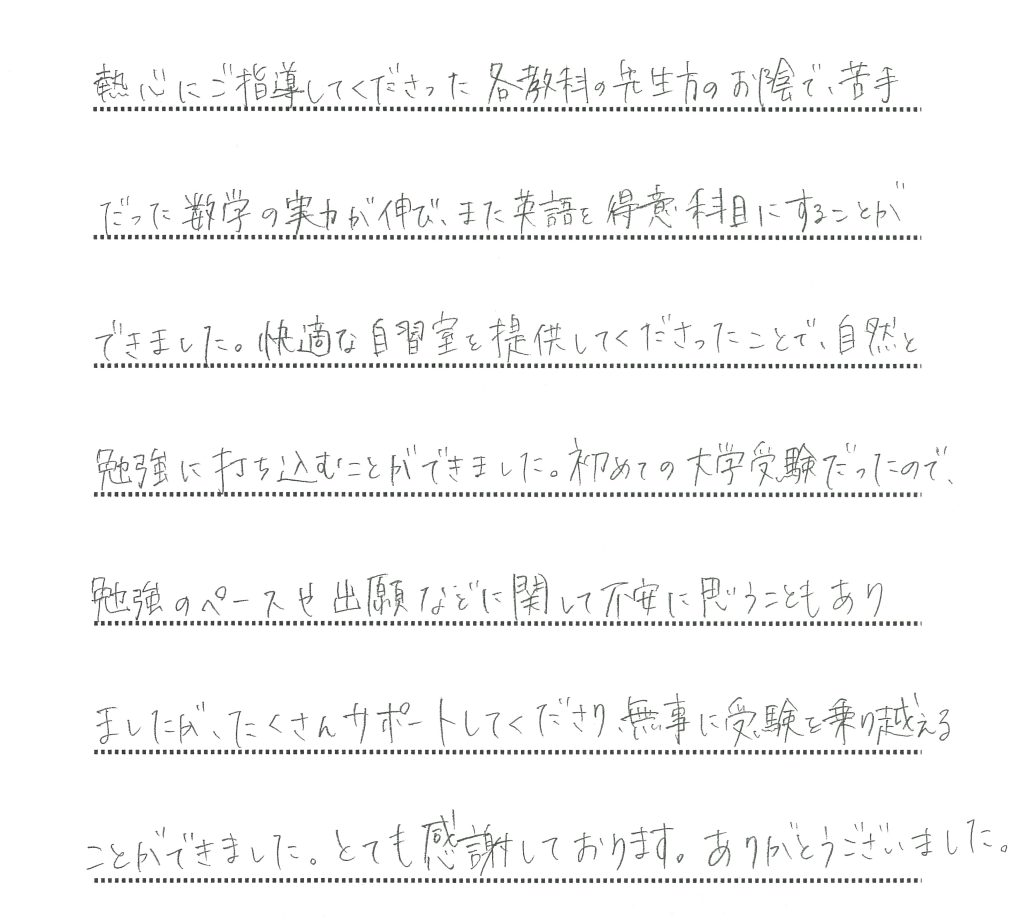 熱心にご指導してくださった各教科の先生方のお陰で、苦手
だった数学の実力が伸び、また英語を得意科目にすることが
できました。快適な自習室を提供してくださったことで、自然と
勉強に打ち込むことができました。初めての大学受験だったので、
勉強のペースや出願などに関して不安に思うこともあり
ましたが、たくさんサポートしてくださり、無事に受験を乗り越える
ことができました。とても感謝しております。ありがとうございました。